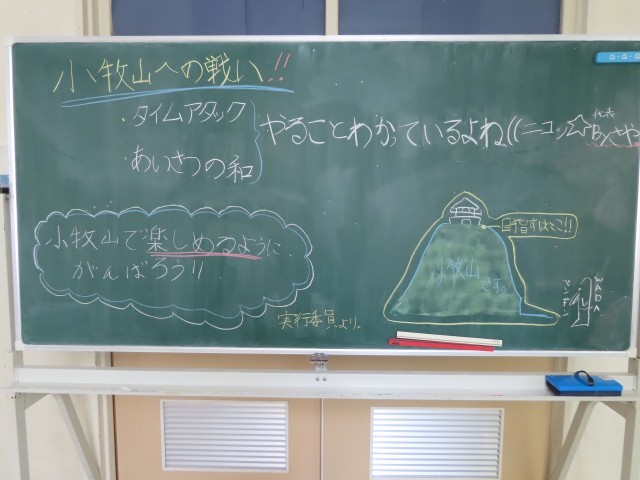 小牧山への戦い!!
・タイムアタック
・あいさつの和
やることわかっているよね((ニコッ☆
代表
By
小牧山で楽しめるように
がんばろう!!
実行委員より。
目指すはここ!!
小牧山
です。
WADA